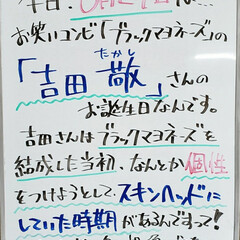 お笑いコンビ「ブラックマヨネーズ」の
「吉田 敬」さんの
たかし
お誕生日なんです。
吉田さんはブラックマヨネーズを
結成した当初、なんとか個性
をつけようとして、スキンヘッドに
していた時期があるんですって!